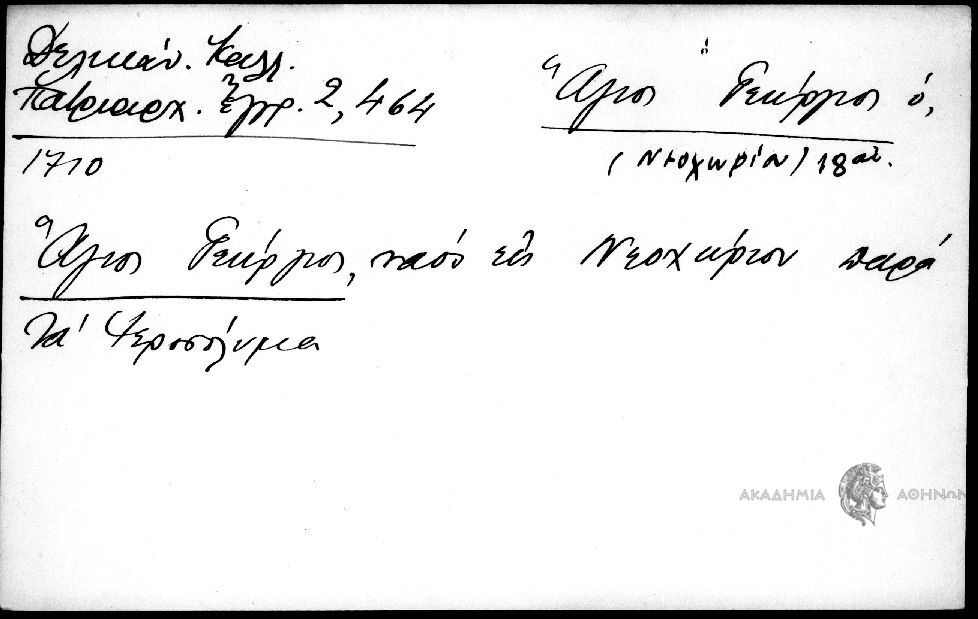 Δελικάν. Καλλ.
Πατριαρχ. Ἔγγρ. 2, 464
1710
Ἅγιος Γεώργιος ὁ,
(Νεοχωρίον) 18 αἰ.
Ἅγιος Γεώργιος, ναός εἰς Νεοχώριον παρά
τά Ἱεροσόλυμα
ΑΚΑΔΗΜΙΑ ΑΘΗΝΩΝ